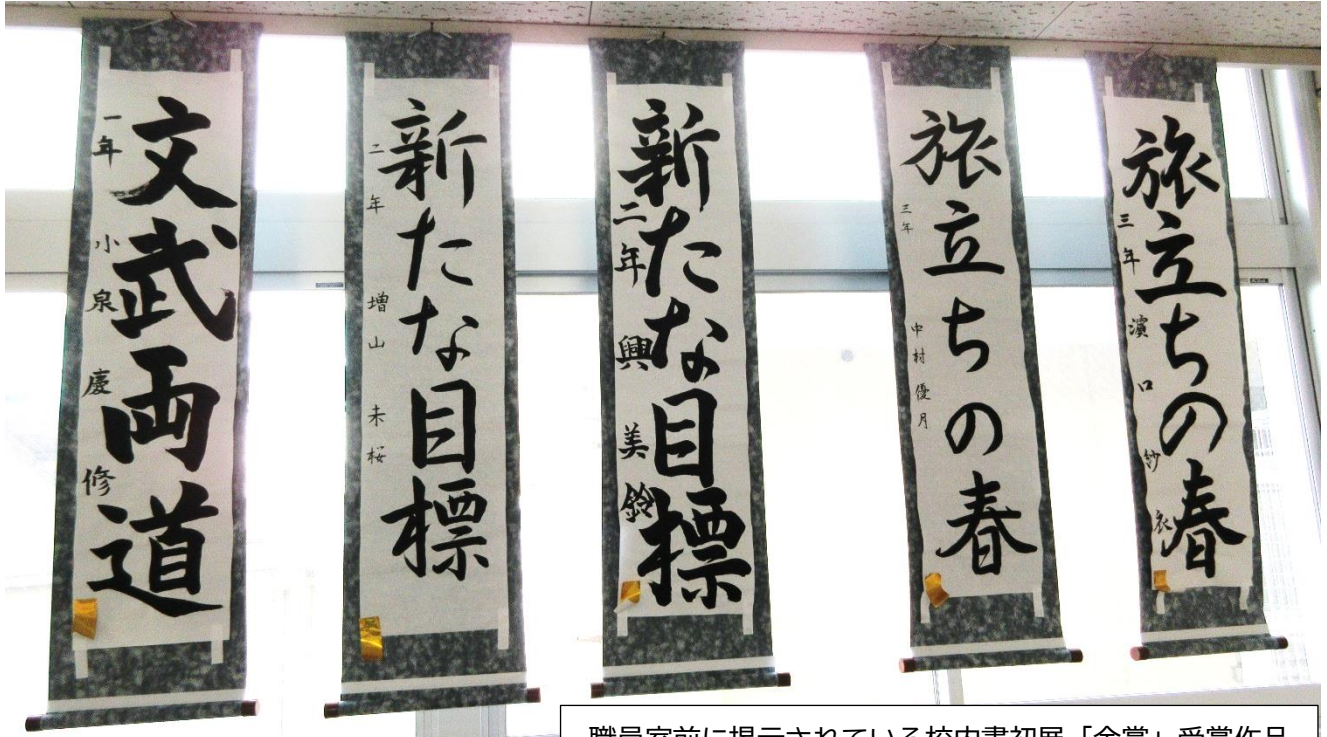 文武両道
一年 小泉慶修
新たな目標
二年 増山未桜
新たな目標
二年 興美鈴
旅立ちの春
三年 中村優月
旅立ちの春
三年 濱口紗衣
職員室前に掲示されている校内書初展「金賞」受賞作品